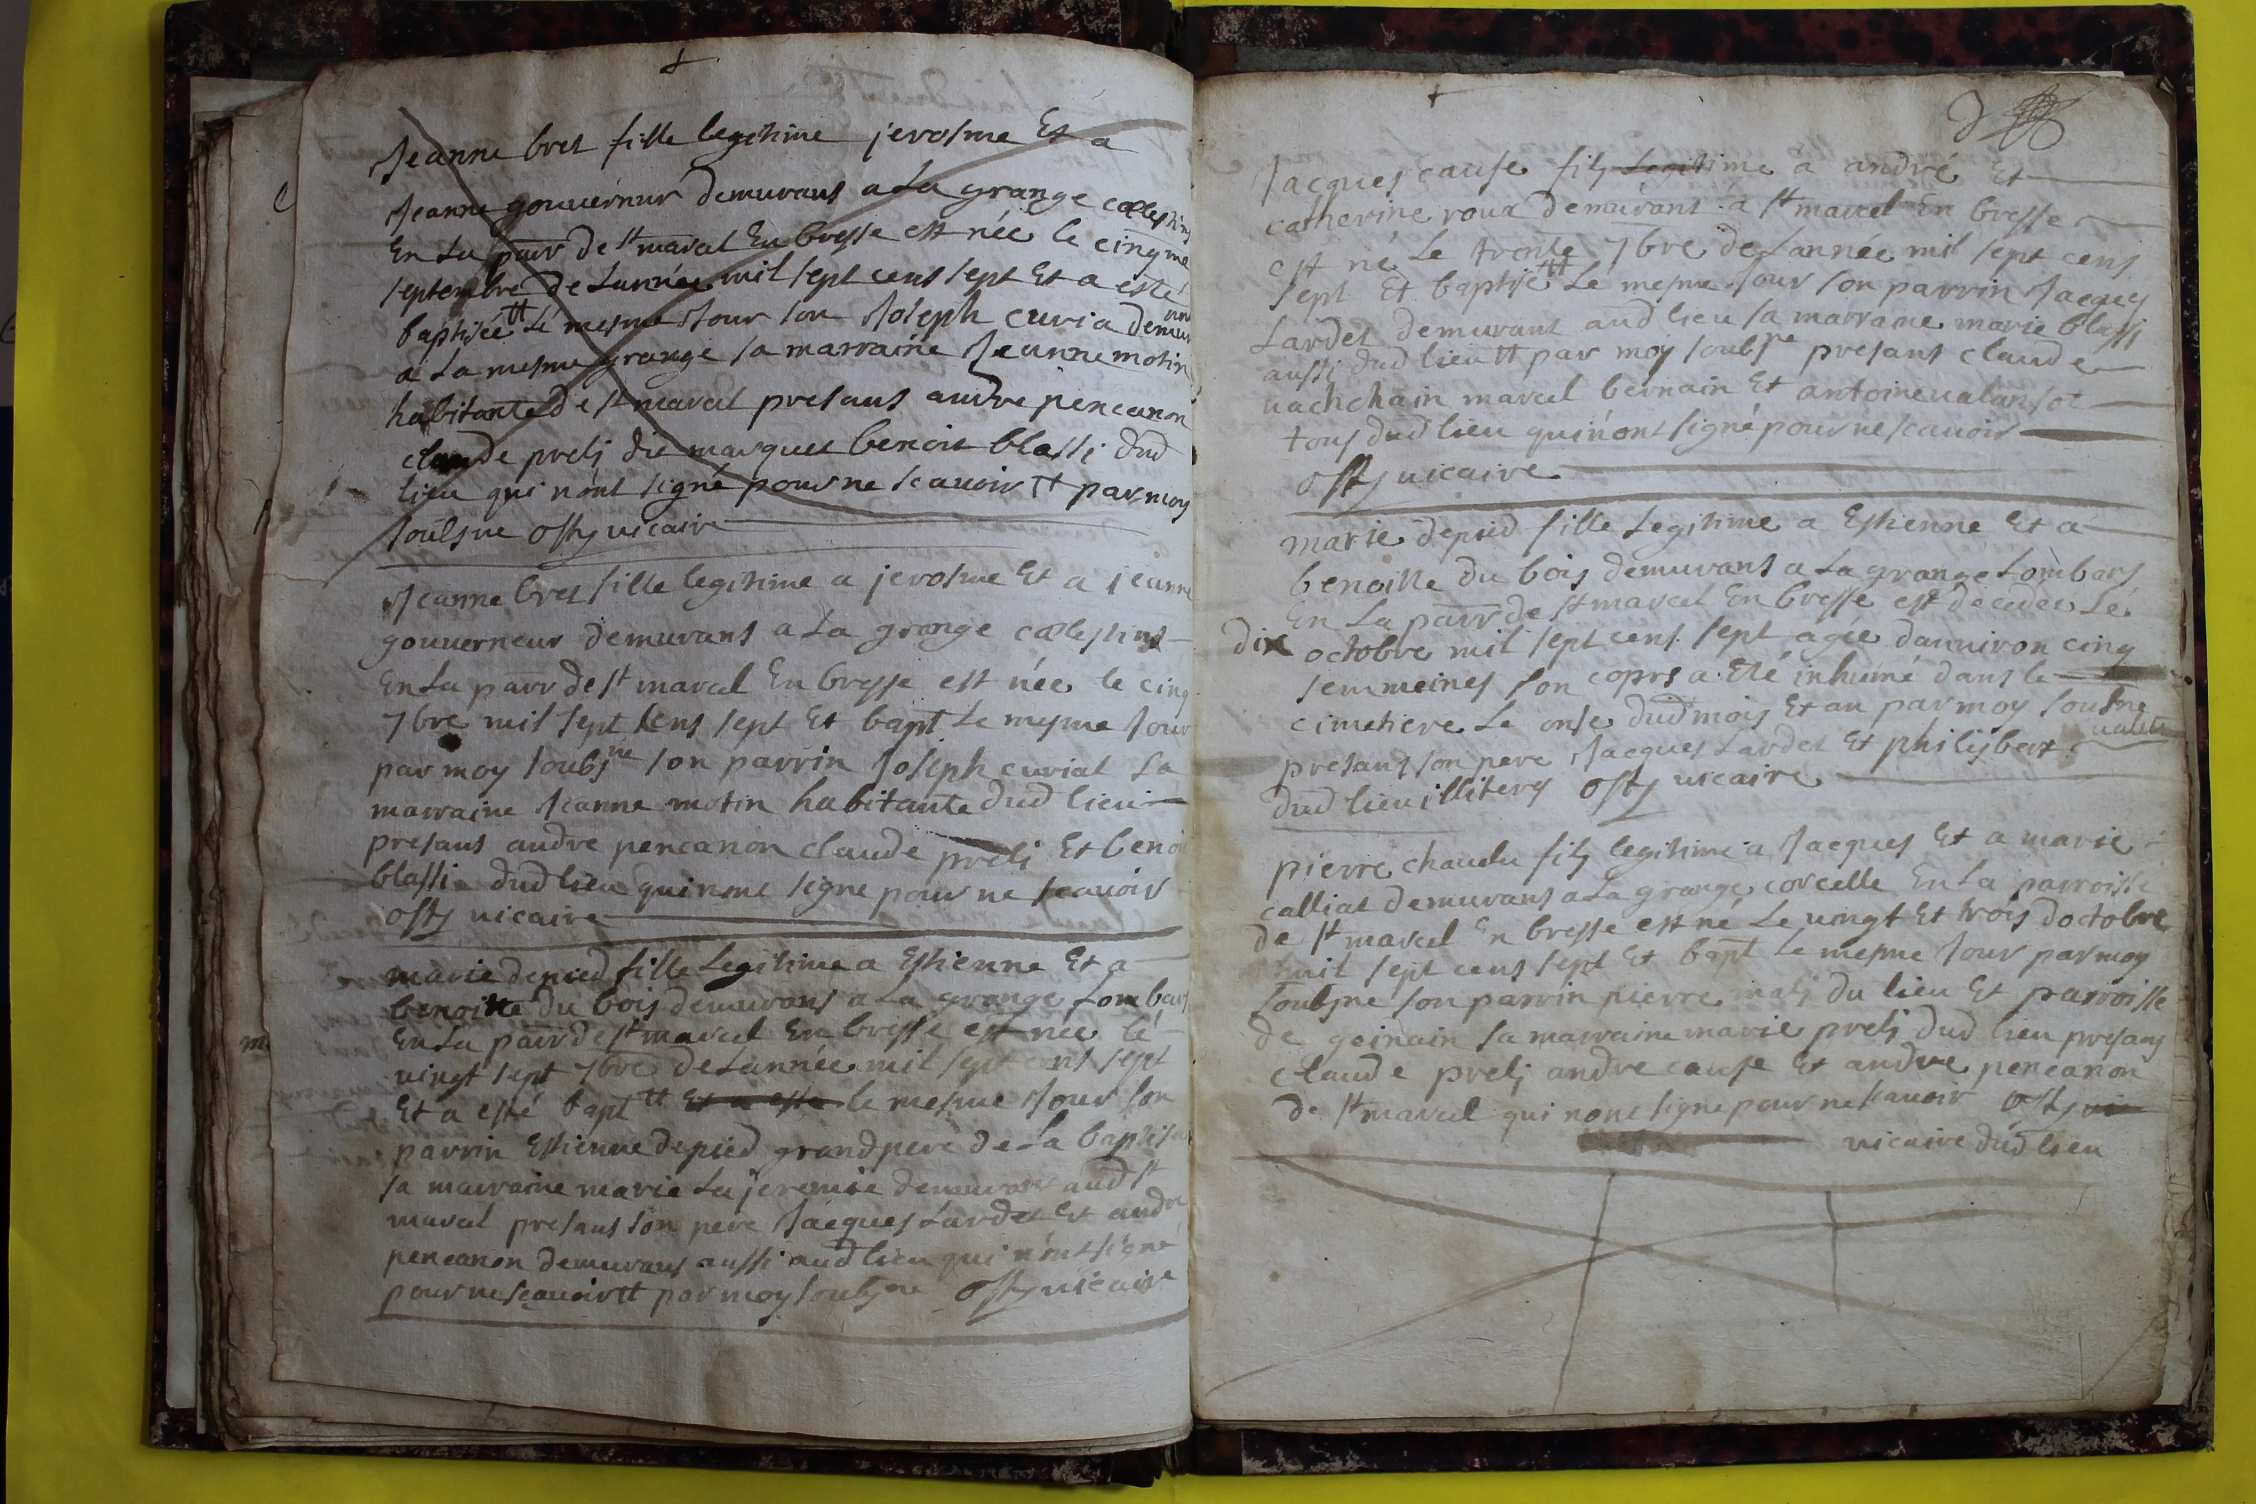 Jeanne bret fille legitime jerosme Et a
Jeanne gouverneur demurans a La grange cœlestins
En La parr de st marcel En bresse est née le cinqme
septembre de Lannée mil sept cens sept Et a esté
baptisée tt Le mesme Jour son Joseph curia demur
a La mesme grange sa marraine Jeanne motin
habitante de st marcel presans andre pencanon
claude prelj dit marquet benoit blassi dud
lieu qui nont signé pour ne scavoir tt par moy
soubsne osty vicaire
Jeanne bret fille legitime a jerosme Et a jeanne
gouverneur demurans a La grange cœlestins
En La parr de st marcel En bresse est née le cinq
7bre mil sept sens sept Et bapt Le mesme Jour
par moy soubsne son parrin Joseph curiat La
marraine Jeanne motin habitante dud lieu
presans andre pencanon claude prelj Et benoi
blassi dud lieu qui nont signe pour ne scavoir
osty vicaire
marie depied fille Legitime a Estienne Et a
benoitte du bois demurans a La grange Lombars
En La parr de st marcel En bresse est née le
vingt sept 7bre de Lannée mil sept cens sept
Et a esté bapt tt Et a este le mesme Jour son
parrin Estienne depied grand pere de La baptisé
sa marraine marie La jeremie demurans aud st
marcel presans son pere Jacques Lardet Et andre
pencanon demurans aussi aud lieu qui nont signé
pour ne scavoir tt par moy soubsne osty vicaire
Jacques cause fils Legitime a andré Et
catherine roux demurans a st marcel En bresse
est né Le trente 7bre de Lannée mil sept cens
sept Et baptisé tt Le mesme Jour son parrin Jacques
Lardet demurant aud lieu sa marraine marie blassi
aussi dud lieu tt par moy soubsne presans claude
vachchain marcel bernain Et antoine valansot
tous dud lieu qui nont signé pour ne scavoir
osty vicaire
marie depied fille Legitime a Estienne Et a
benoitte du bois demurans a La grange Lombars
En La parr de st marcel En bresse est decedee Le
dix octobre mil sept cens sept agée danviron cinq
semmeines son coprs a Eté inhumé dans le
cimetiere Le onse dud mois Et an par moy soubsne
presans son pere Jacques Lardet Et philisbert
dud lieu illiterez osty vicaire
pierre chaudu fils legitime a Jacques Et a marie
calliat demurans a La grange corcelle En La parroisse
de st marcel En bresse est né Le vingt Et trois doctobre
mil sept cens sept Et bapt Le mesme Jour par moy
soubsne son parrin pierre du lieu Et parroisse
de sa marraine marie prelj dud lieu presans
claude prelj andre cause Et andre pencanon
de st marcel qui nont signe pour ne scavoir osty vi
vicaire dud lieu